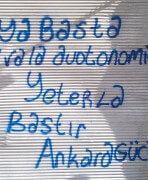 Ya Basta
vala auotonomi
YeterLa
Bastır
AnkaraGüc